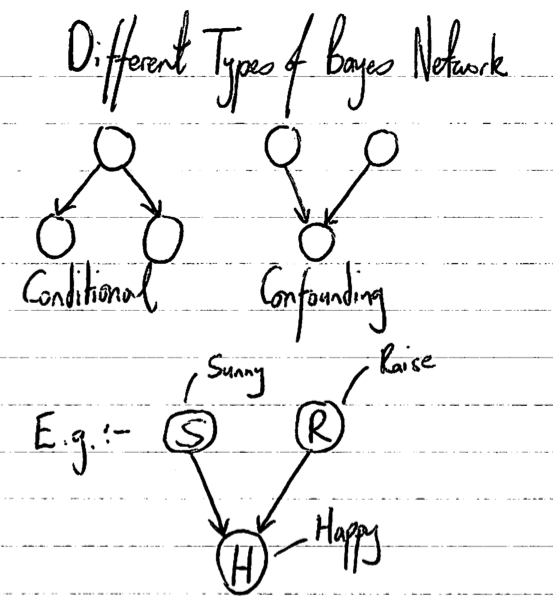 Different Types of Bayes Network
Conditional
Confounding
Sunny
Raise
E.g.:-
S
R
Happy
H